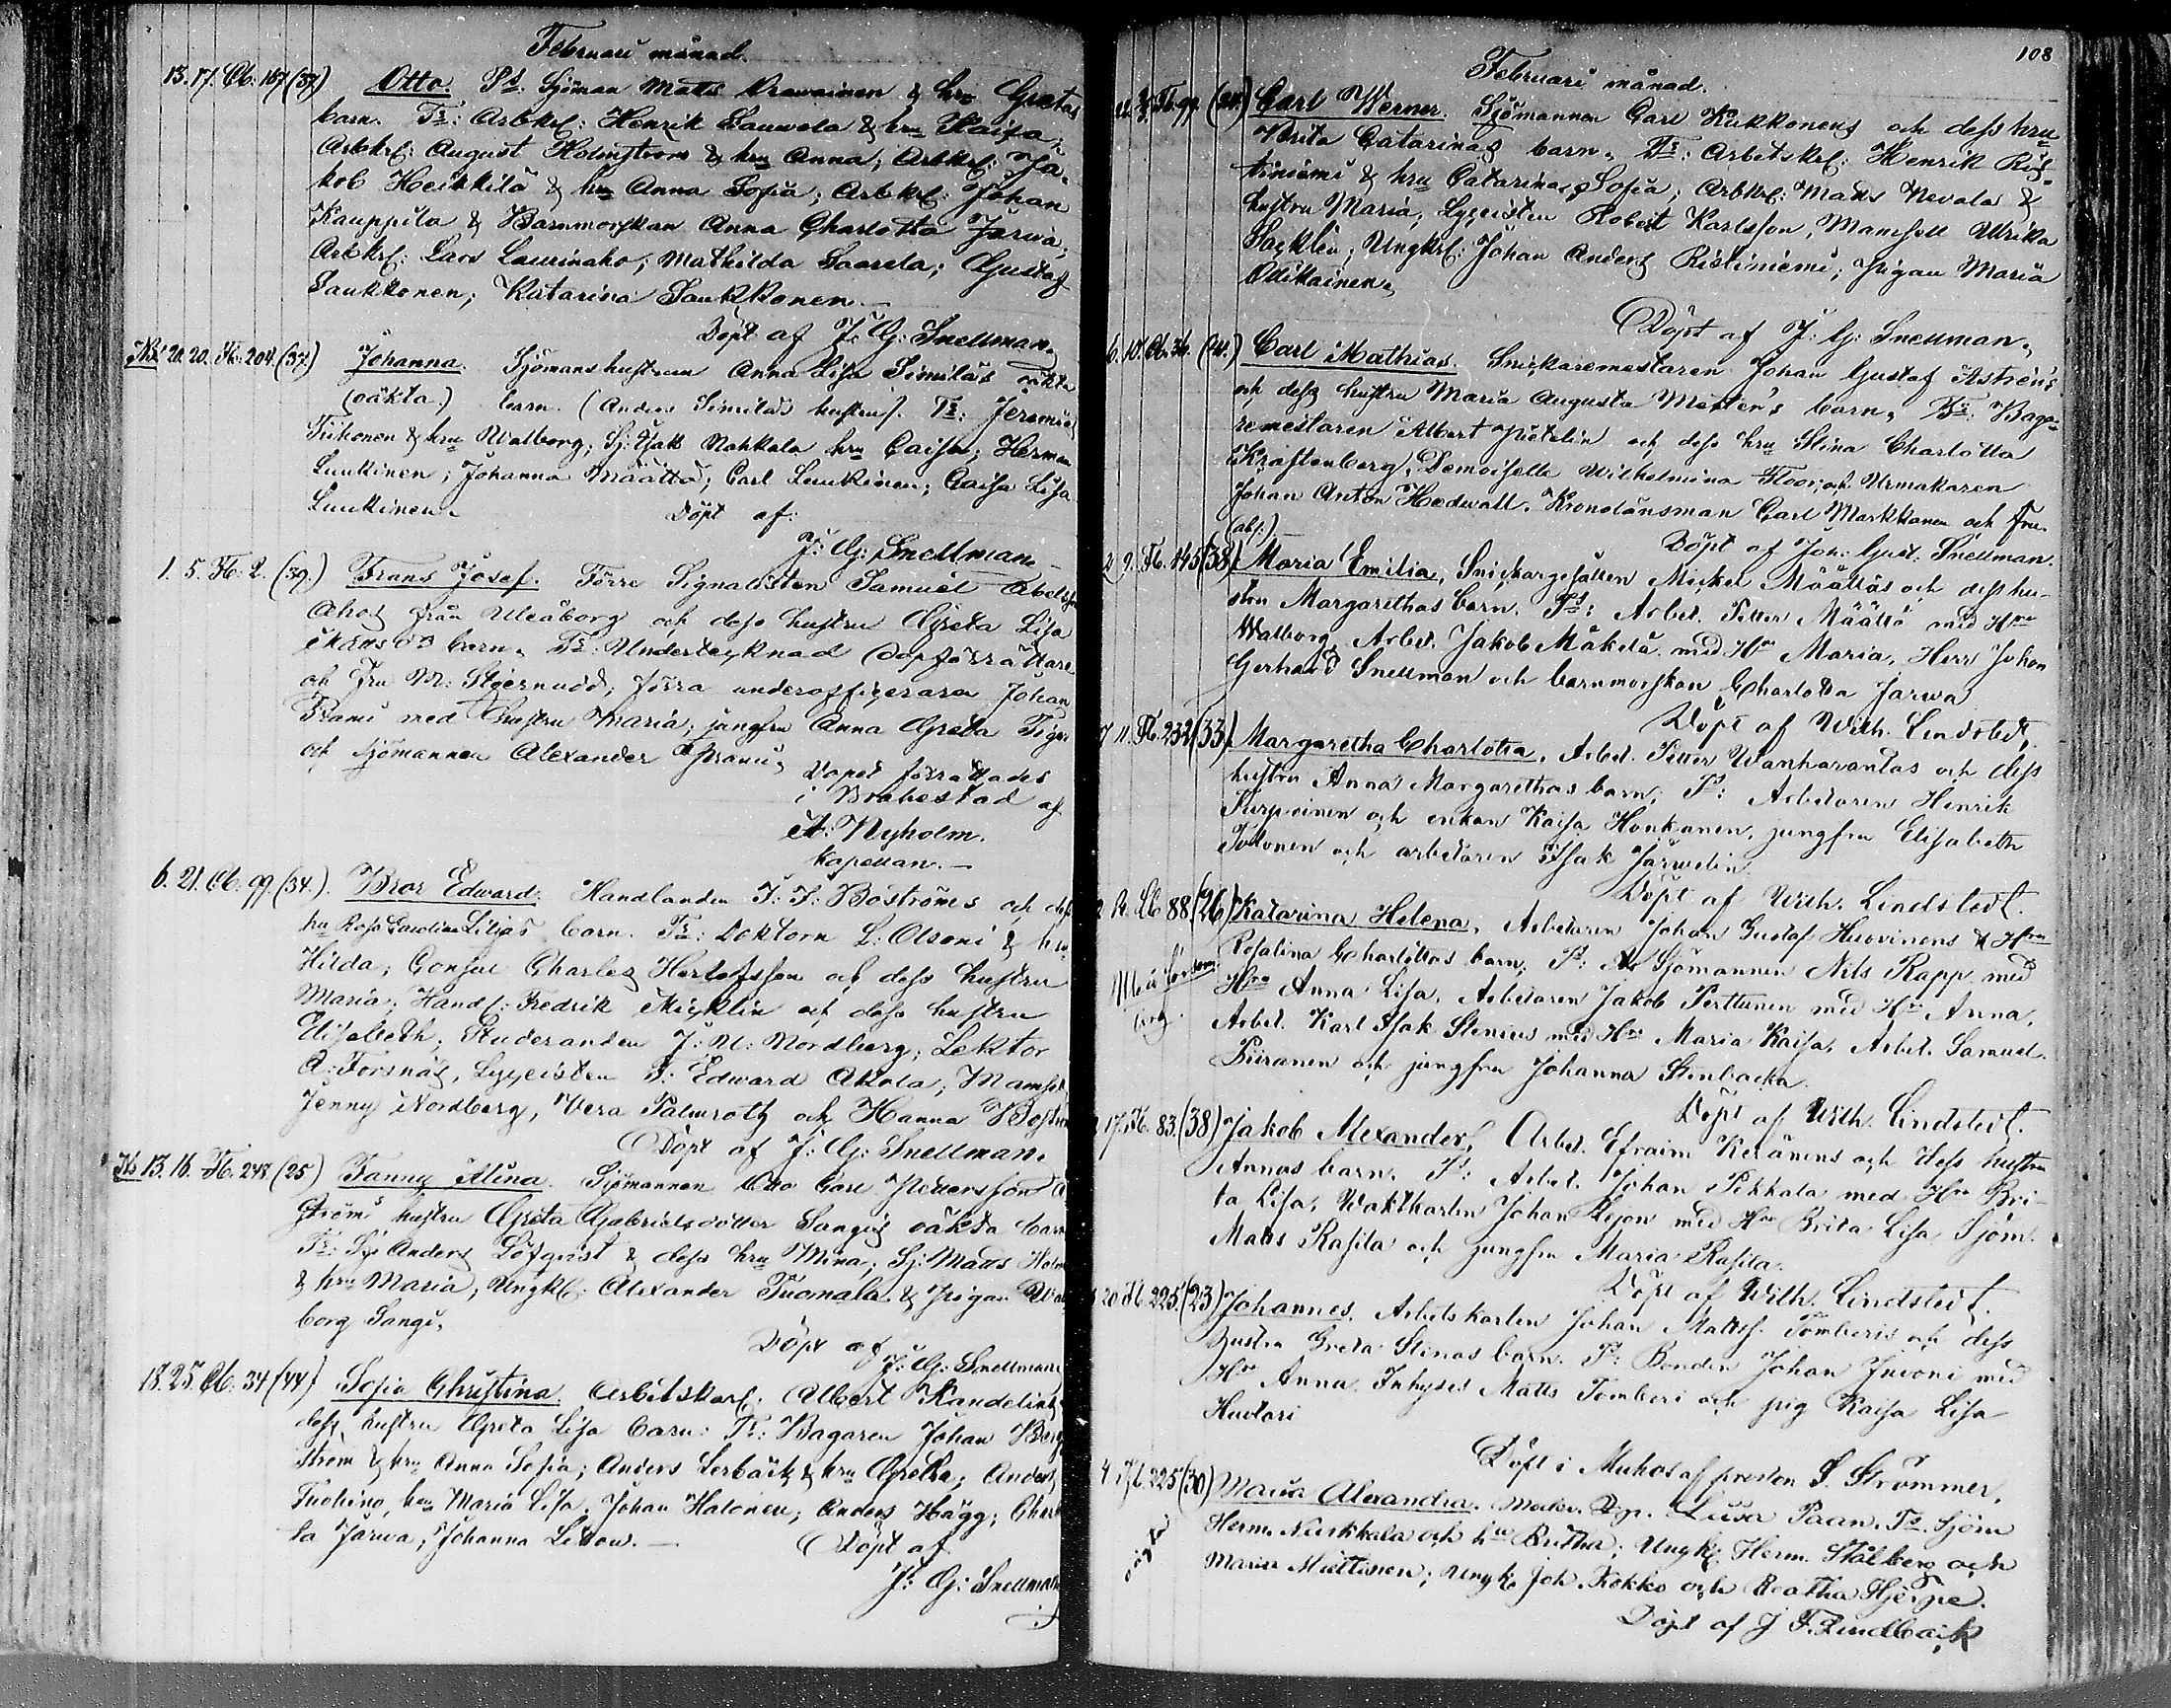 Februari månad.
13. 17. Ob. 167 (37) Otto. Ps. Sjöman Matts hru Gretas
barn. Fs: Arbkrl: Henrik Sauwola & hru Kaisa;
Arbkrl: August Holmström & hru Anna; Arbkrl: Ja-
kob Heikkilä & hru Anna Sofia; Arbkrl: Johan
Kauppila & Barnmorskan Anna Charlotta Järwa;
Arbkrl: Lars Laurinaho; Mathilda Saarela; Gustaf
Saukkonen; Katarina Saukkonen.—
Döpt af J. G: Snellman.
20. 20. Fb. 204. (37.) Johanna. Sjömanshustrun Anna Lisa Similäs oäkta
(oäkta.) barn. (Anders Similäs hustru). Fs: Jeremias
Tiihonen & hru Walborg; Sj: Isak Nahkala hru Caisa; Herman
Luukinen; Johanna Määttä; Carl Luukinen; Caisa Lisa
Luukinen. Döpt af:
J: G: Snellman.
1. 5. Fb. 2. (39.) Frans Josef. Förre Signalisten Samuel Abelsson
Ahos från Uleåborg och dess hustru Greta Lisa
barn. Fs: Undertecknad Dopförrättare
och Fru M: Stjernudd; förra underofficeraren Johan
Franu med hustru Maria; jungfru Anna Greta
och sjömannen Alexander Franu.
Dopet förrättades
i Brahestad af
A: Nyholm.
Kapellan.—
6. 21. Ob. 99. (34.) Bror Edward. Handlanden J: F: Boströms och dess
hru Rosa Carolina Lilius barn. Fs: Doktorn L: Olsoni & hru
Hilda; Consul Charles Hertolfsson och dess hustru
Maria; Handl: Fredrik Micklin och dess hustru
Elisabeth; Studeranden J: N: Nordberg; Lektor
A: Forsnäs, Lyceisten J: Edward Akola; Mamsell
Jenny Nordberg, Vera Palmroth och Hanna Boström
Döpt af J: G: Snellman.
13. 16. Fb. 248. (25) Fanny Alina. Sjömannen Otto Carl Pettersson
ströms hustru Greta Gabrielsdotter Sangis oäkta barn
Fs: Sj: Anders Löfqvist & dess hru Mina; Sj: Matts Holm
& hru Maria; Ungkl: Alexander Tuomala & Pigan Wal
borg Sangi.
Döpt af
J: G: Snellman
18. 25. Ob. 34 (44) Sofia Christina. Arbetskarl: Albert Kandelins
dess hustru Greta Lisa barn: Fs: Bagaren Johan Berg
ström & hru Anna Sofia; Anders Lerbäck & hru Gretha; Anders
Tuohino, hru Maria Lisa. Johan Halonen; Anders Hägg; Charl
ta Järwa; Johanna Letzow.— Döpt af
J: G: Snellman

108
Februari månad.
Fb. 99. Carl Werner. Sjömannen Carl Kukkonens och dess hru
Brita Catarinas barn. Fs: Arbetskrl: Henrik Ris-
tiniemi & hru Catarina Sofia; Arbkrl: Matts Nevala &
hustru Maria; Lyceisten Robert Karlsson, Mamsell Ulrika
Sacklin; Ungkrl: Johan Anders Ristiniemi; Pigan Maria
Ollikainen.
Döpt af J: G: Snellman.
6. 10. Ob. 36. (24.) Carl Mathias. Snickaremestaren Johan Gustaf Aström's
och dess hustru Maria Augusta barn. Fs: Baga-
remestaren Albert Pietelin och dess hru Stina Charlotta
Kraftenberg, Demoiselle Wilhelmina Floor, och Urmakaren
Johan Anton Hedwall. Kronolänsman Carl Markkanen och fru.
(abs:)
Döpt af Joh: Gust. Snellman.
2 9. Fb. 145 (38) Maria Emilia, Snickargesällen Mickel Määttäs och dess hu-
stru Margarethas barn. Fs: Arbet. Petter Määttä med Hru
Walborg, Arbet. Jakob Mäkelä med Hru Maria, Herr Johan
Gerhard Snellman och barnmorskan Charlotta Jarwa
Döpt af Wilh. Lindstedt.
7 11. Fb. 232 (33) Margaretha Charlotta, Arbet. Petter Wanharantas och dess
hustru Anna Margarethas barn. Fs: Arbetaren Henrik
Kurpoinen och enkan Kaisa Honkanen, jungfru Elisabeth
Tolonen och arbetaren Isak Järwelin.
Döpt af Wilh. Lindstedt.
Ob 88 (26) Katarina Helena, Arbetaren Johan Gustaf Huovinens & Hru
Rosalina Charlottas barn; Fs: Sjömannen Nils Rapp med
Hru Anna Lisa, Arbetaren Jakob Perttunen med Hru Anna,
Arbet. Karl Isak Stenius med Hru Maria Kaisa, Arbet. Samuel
Piiranen och jungfru Johanna Stenbacka.
Döpt af Wilh. Lindstedt.
17. Fb. 83. (38) Jakob Alexander, Arbet. Efraim Keränens och dess hustru
Annas barn. Fs: Arbet. Johan Pekkala med Hru Bri-
ta Lisa, Waktkarlen Johan Lejon med Hru Brita Lisa, Sjöm.
Matts Rasila och jungfru Maria Rasila.
Döpt af Wilh. Lindstedt.
20 Fb. 225. (23) Johannes. Arbetskarlen Johan Mattss. Tomberis och dess
hustru Greta Stinas barn. Fs: Bonden Johan Juvoni med
Hru Anna. Inhyses Matts Tomberi och pig Kaisa Lisa
Huotari
Döpt i Muhos af prosten S. Strömmer.
4. 7. Fb. 225 (30) Maria Alexandra. Luisa Paan. Fs. Sjöm
Herm. Nuskkala och hru Britha; Ungk. Herm. Stålberg och
Maria Miettinen; Ungk. Joh. Kokko och Beatha Hjerpe.
Döpt af J F. Lindbäck